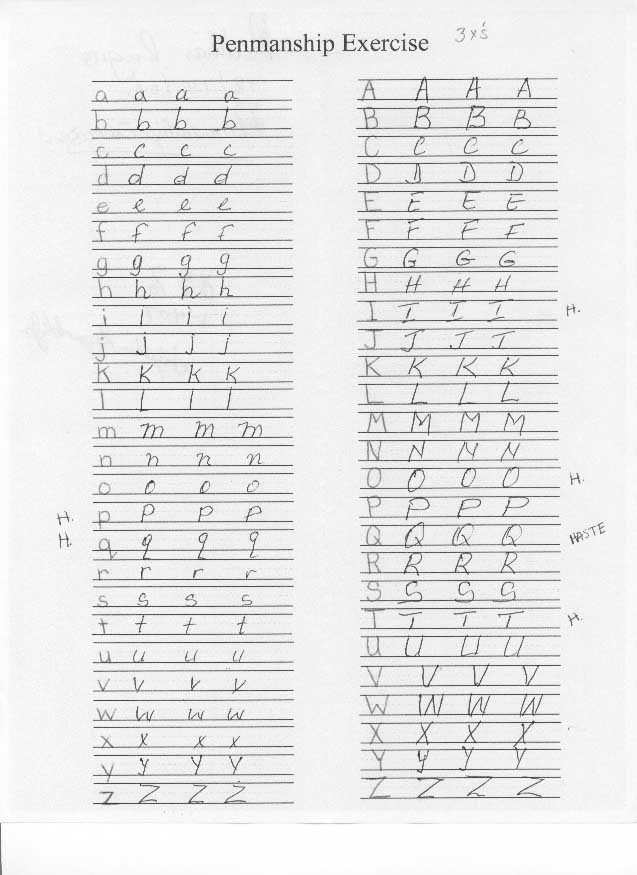 Penmanship Exercise 3x's
a a a a
b b b b
c c c c
d d d d
e e e e
f f f f
g g g g
h h h h
i i i i
j j j j
k k k k
l l l l
m m m m
n n n n
o o o o
H. p p p p
H. q q q q
r r r r
s s s s
t t t t
u u u u
v v v v
w w w w
x x x x
y y y y
z z z z
A A A A
B B B B
C C C C
D D D D
E E E E
F F F F
G G G G
H H H H
I I I I H.
J J J J
K K K K
L L L L
M M M M
N N N N
O O O O H.
P P P P
Q Q Q Q HASTE
R R R R
S S S S
T T T T H.
U U U U
V V V V
W W W W
X X X X
Y Y Y Y
Z Z Z Z